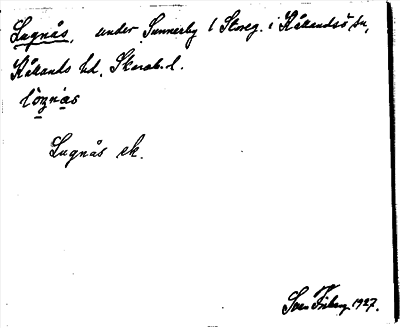 Lugnås, under Sunnerby 1 Storeg. i Kållandsö sn,
Kållands hd. Skarab. l.
lôgnàs
Lugnås ek.
Sven Friberg 1927.